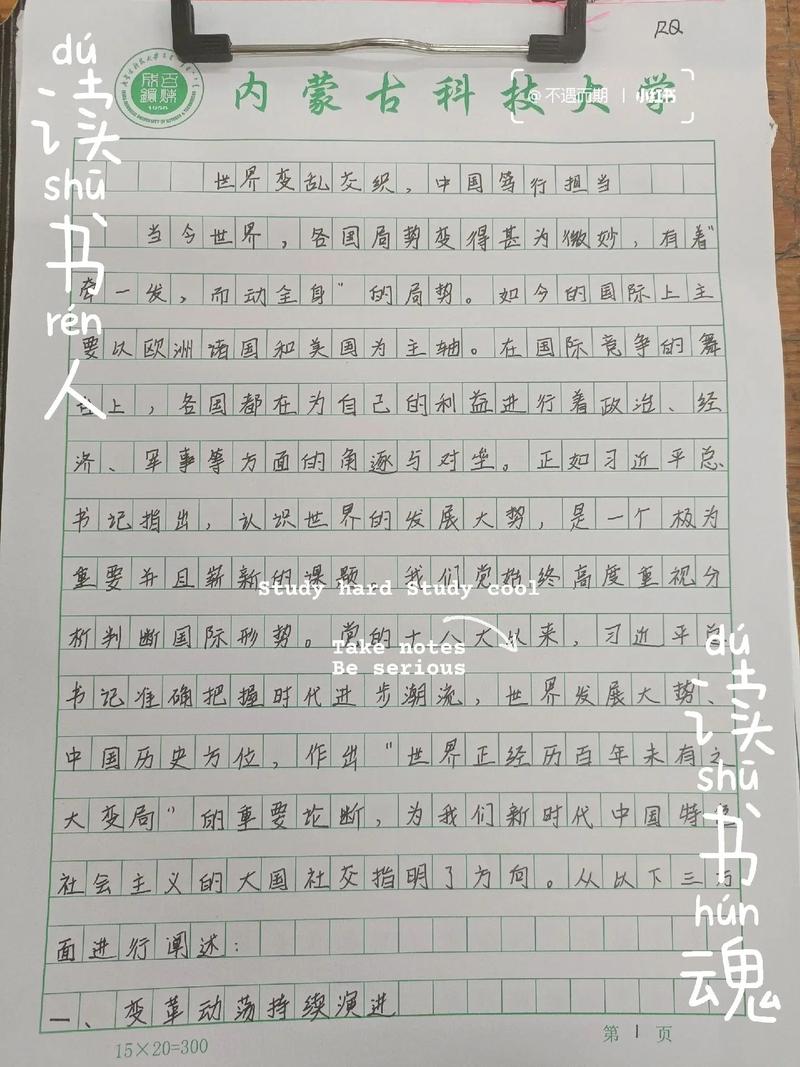 RQ
内蒙古科技大学
@不遇而期 | 小红书
dú
读
shū
书
rén
人
世界变乱交织，中国笃行担当
当今世界，各国局势变得甚为微妙，有着"
牵一发，而动全身"的局势。如今的国际上主
要以欧洲诸国和美国为主轴。在国际竞争的舞
台上，各国都在为自己的利益进行着政治、经
济、军事等方面的角逐与对垒。正如习近平总
书记指出，认识世界的发展大势，是一个极为
重要并且崭新的课题。我们党始终高度重视分
析判断国际形势。党的十八大以来，习近平总
书记准确把握时代进步潮流，世界发展大势、
中国历史方位，作出"世界正经历百年未有之
大变局"的重要论断，为我们新时代中国特色
社会主义的大国社交指明了方向。从以下三方
面进行阐述：
一、变革动荡持续演进
Study hard Study cool
Take notes
Be serious
dú
读
shū
书
hún
魂
15×20=300
第1页